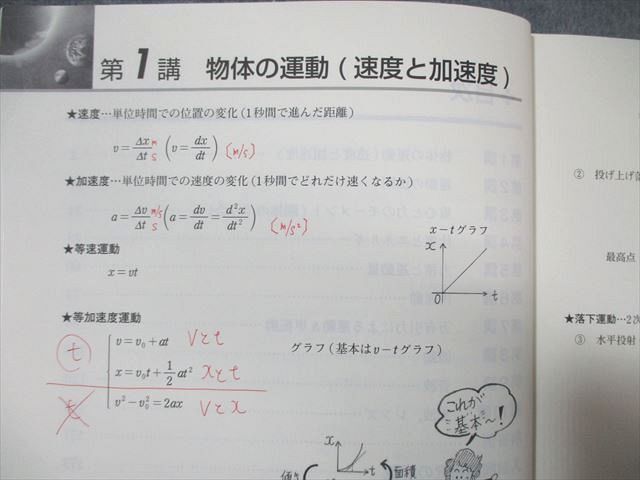 第1講 物体の運動(速度と加速度)
★速度…単位時間での位置の変化(1秒間で進んだ距離)
v=Δx/Δt m/s (v=dx/dt) [m/s]
★加速度…単位時間での速度の変化(1秒間でどれだけ速くなるか)
a=Δv/Δt m/s/s (a=dv/dt=d²x/dt²) [m/s²]
★等速運動
x=vt
x-tグラフ
x
0
t
★等加速度運動
t
v=v₀+at vとt
x=v₀t+1/2at² xとt
t
v²-v₀²=2ax vとx
グラフ(基本はv-tグラフ)
これが
基本〜!
x
t
傾き
面積
② 投げ上げ
最高点
★落下運動…2次
③ 水平投射